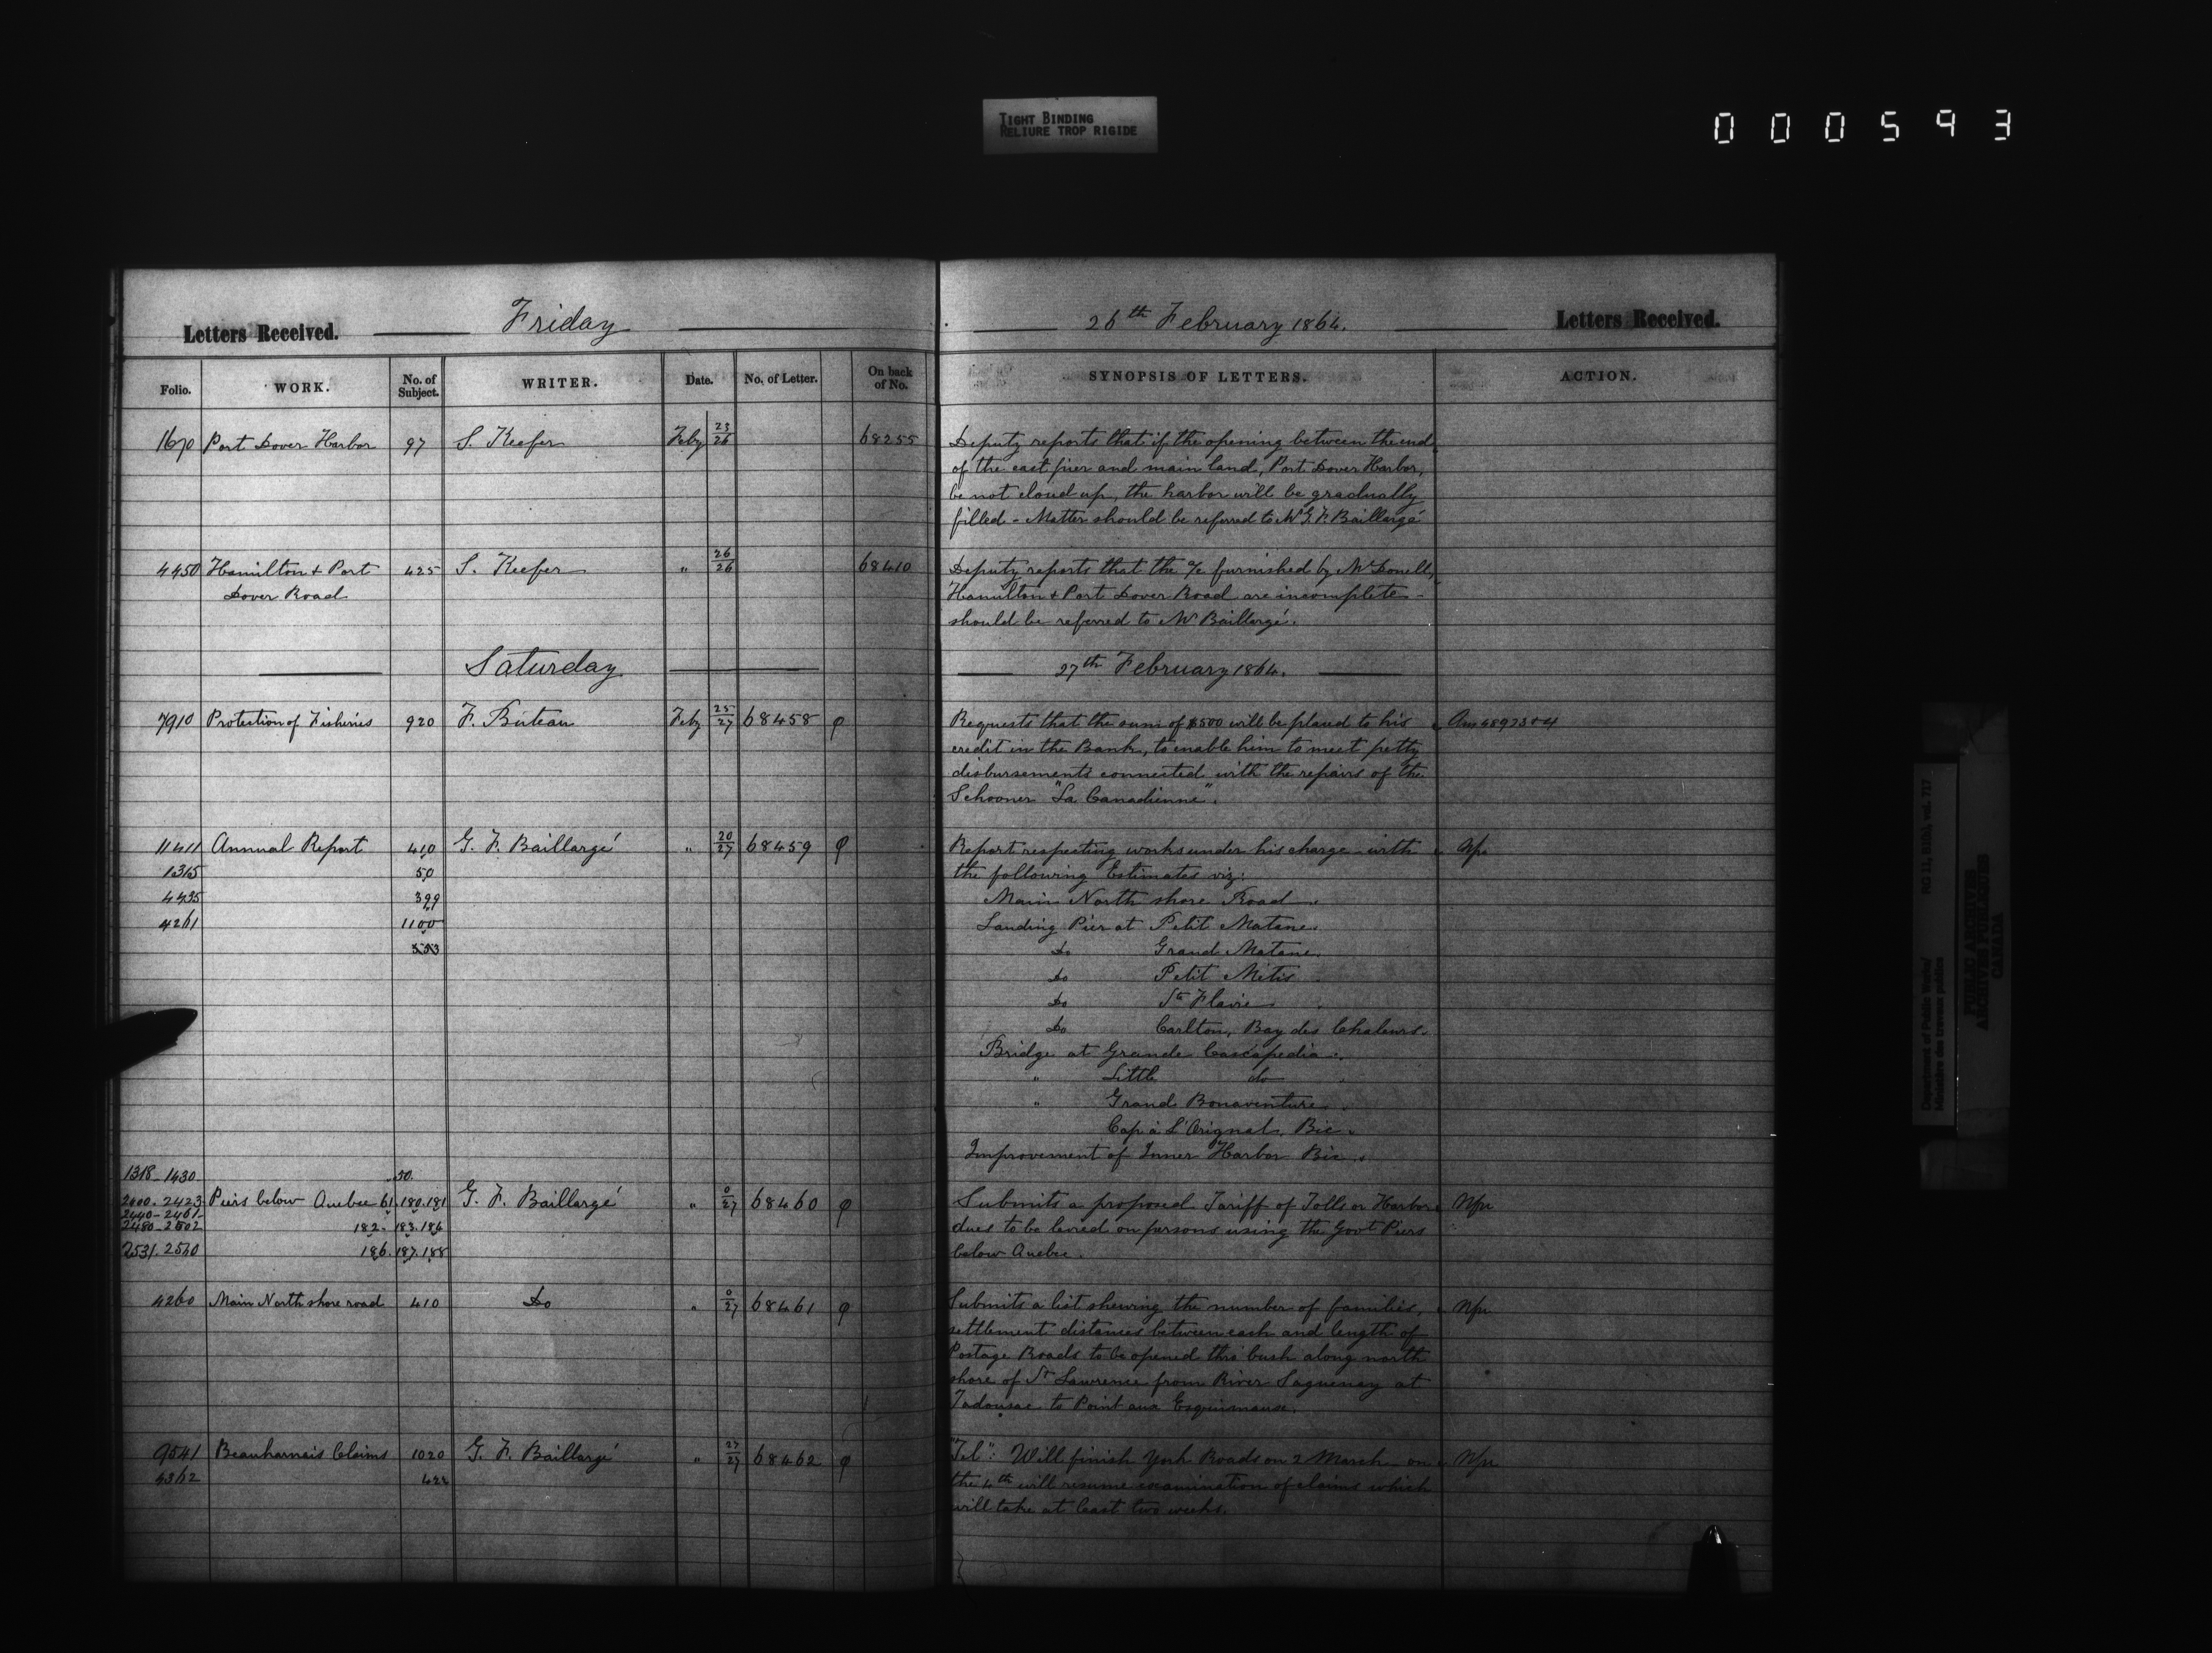 TIGHT BINDING
RELIURE TROP RIGIDE
000593
Letters Received. Friday
26th February 1864. Letters Received.
Folio. WORK. No. of Subject. WRITER. Date. No. of Letter. On back of No. SYNOPSIS OF LETTERS. ACTION.
1670 Port Dover Harbor 97 S. Keefer Feby 23/26 68255 Deputy reports that if the opening between the end
of the east pier and main land, Port Dover Harbor,
be not closed up, the harbor will be gradually
filled - Matter should be referred to Mr G. F. Baillargé
4450 Hamilton & Port 425 S. Keefer " 26/26 68410 Deputy reports that the a/c furnished by McDonell,
Dover Road Hamilton & Port Dover Road are incomplete -
should be referred to Mr Baillargé.
Saturday 27th February 1864.
7910 Protection of Fisheries 920 F. Buteau Feby 25/27 68458 φ Requests that the sum of $500 will be placed to his
credit in the Bank, to enable him to meet petty
disbursements connected with the repairs of the
Schooner "La Canadienne".
11411 Annual Report 410 G. F. Baillargé " 20/27 68459 φ Report respecting works under his charge - with
1315 50 the following Estimates viz:
4435 399 Main North shore Road
4261 1100 Landing Pier at Petit Matane.
553 Do Grand Matane.
Do Petit Mitis
Do Ste Flavie
Do Carlton, Bay des Chaleurs.
Bridge at Grande Cascapedia.
" Little do
" Grand Bonaventure.
Cap à L'Orignal. Bic.
Improvement of Inner Harbor Bic.
1318-1430 50.
2400-2423 Piers below Quebec 61.180.181 G. F. Baillargé " 0/27 68460 φ Submits a proposed Tariff of Tolls or Harbor
2440-2461-
2480-2502 182-183.184 dues to be levied on persons using the Govt Piers
2531.2540 186.187.188 below Quebec.
4260 Main North shore road 410 Do " 0/27 68461 φ Submits a list shewing the number of families,
settlement distances between each and length of
Postage Roads to be opened thro' bush along north
shore of St Lawrence from River Saguenay at
Tadousac to Point aux Esquimaux.
9541 Beauharnais Claims 1020 G. F. Baillargé " 27/27 68462 φ "Tel": Will finish York Roads on 2 March - on
4362 422 the 4th will resume examination of claims which
will take at least two weeks.
Department of Public Works/
Ministère des travaux publics
RG 11, B1(b), vol. 717
PUBLIC ARCHIVES
ARCHIVES PUBLIQUES
CANADA